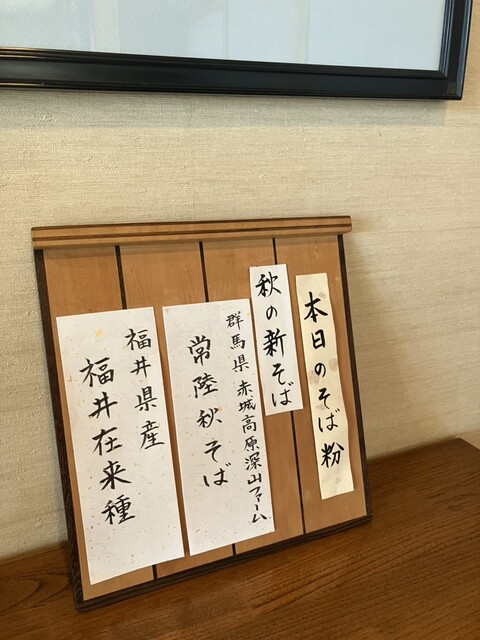 本日のそば粉
秋の新そば
群馬県赤城高原深山ファーム
常陸秋そば
福井県産
福井在来種